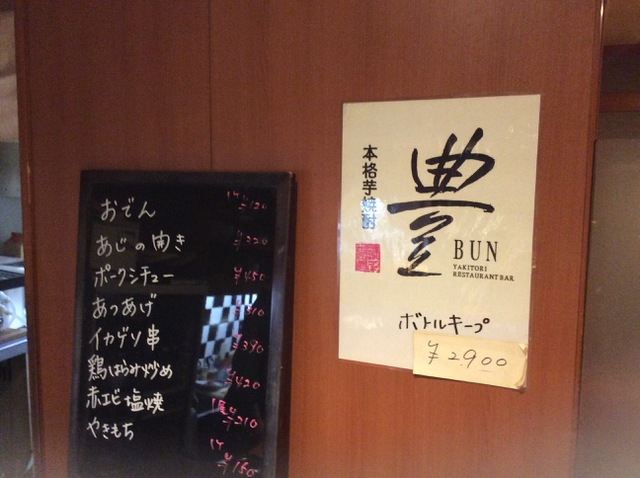 おでん 1ヶ ¥120
あじの開き ¥320
ポークシチュー ¥450
あつあげ ¥310
イカゲソ串 ¥390
鶏はらみ炒め ¥420
赤エビ塩焼 1尾 ¥210
やきもち 1ヶ ¥150
本格芋焼酎
豊
BUN
YAKITORI
RESTAURANT BAR
ボトルキープ
¥2900